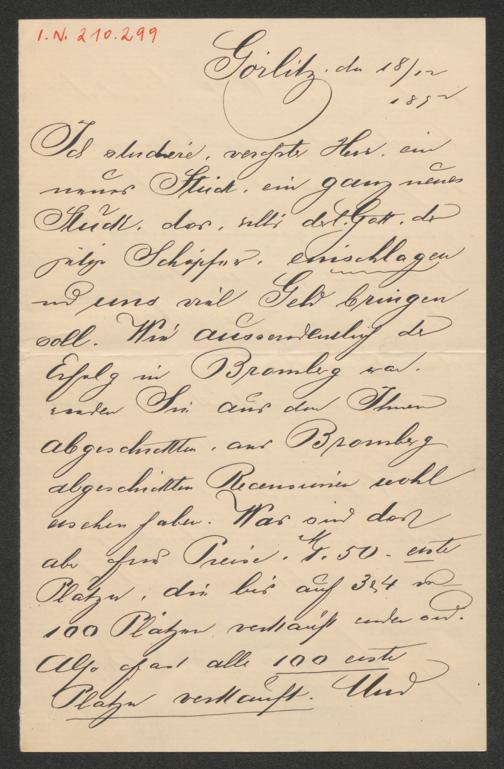 I.N. 210.299
Görlitz. den 18/12
1892
Ich studiere, verehrter Herr, ein
neues Stück, ein ganz neues
Stück, das, will's der l. Gott, der
Schöpfer, einschlagen
und uns viel Geld bringen
soll. Wie ausserordentlich der
Erfolg in Bromberg war,
werden Sie aus den Ihnen
abgeschickten, aus Bromberg
abgeschickten Recensionen wohl
ersehen haben. Was sind dort
aber für Preise. M. 1.50 - erste
Plätze, die bis auf 3&4 von
100 Plätzen verkauft worden sind.
Also fast alle 100 erste
Plätze verkauft. Und